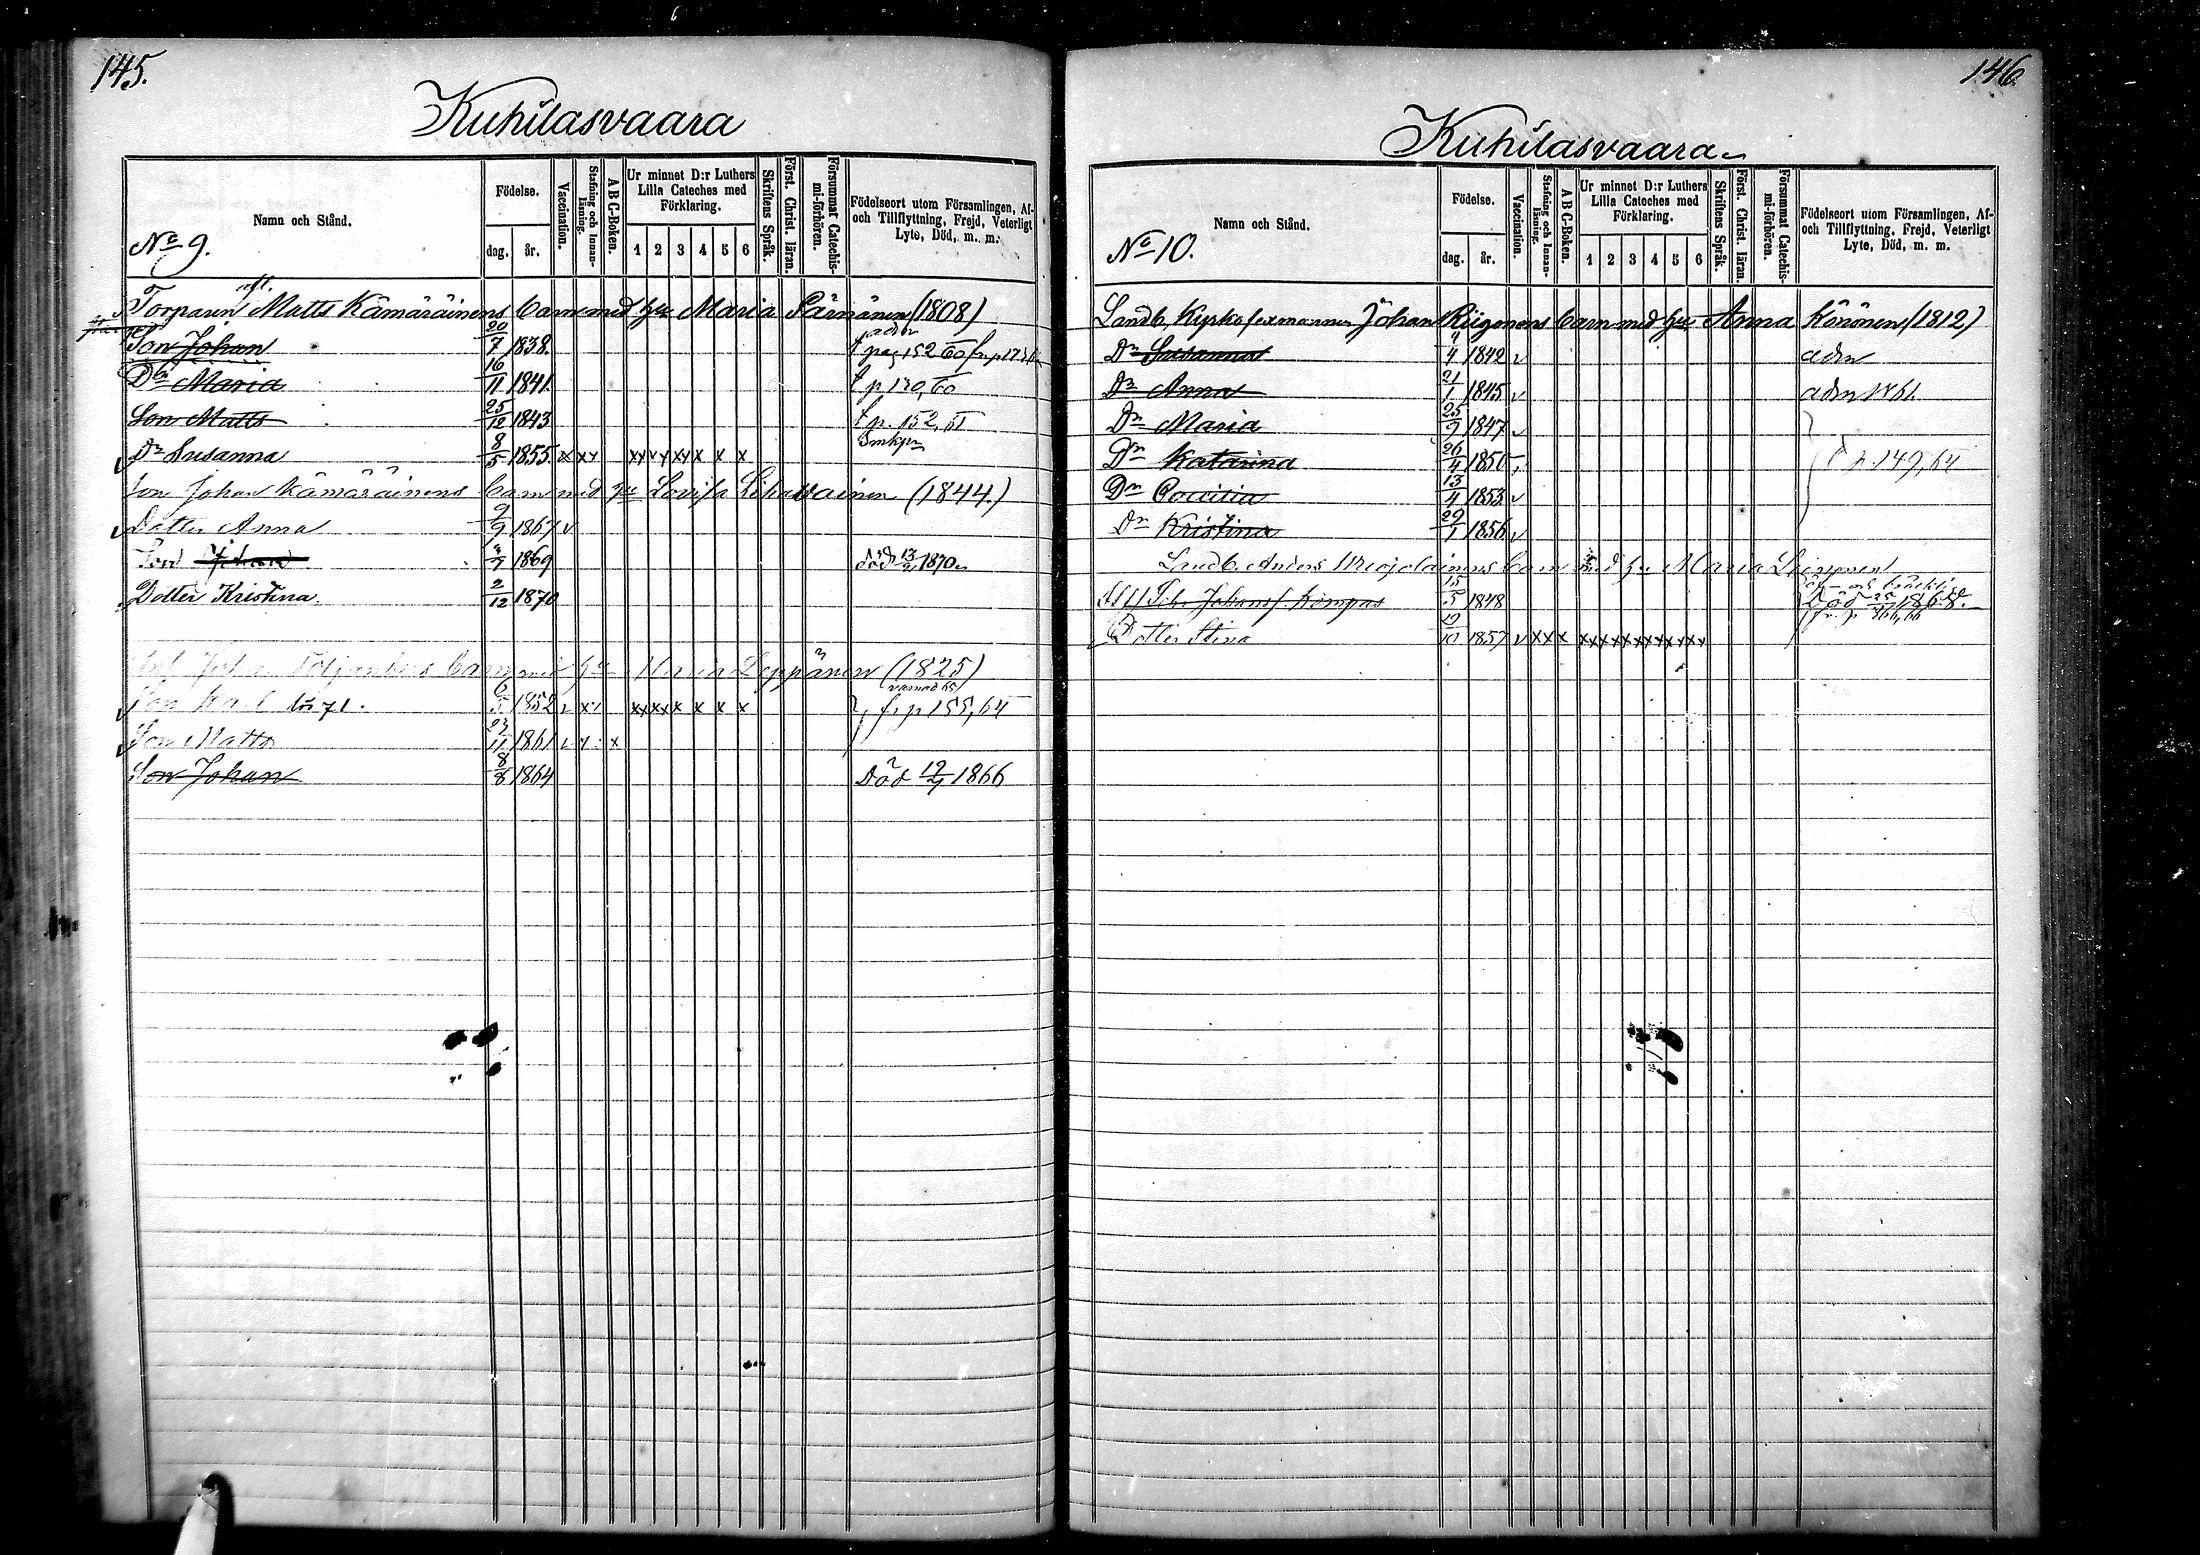 145.
Kuhilasvaara
Namn och Stånd.
No 9.
Födelse.
dag. år.
Vaccination.
Stafning och Innanläsning.
A B C-Boken.
Ur minnet D:r Luthers Lilla Cateches med Förklaring.
1 2 3 4 5 6
Skriftens Språk.
Först. Christ. läran.
Försummat Catechismi-förhören.
Födelseort utom Församlingen, Af- och Tillflyttning, Frejd, Veterligt Lyte, Död, m. m.
Torparen Matts Kämäräinens barn med hu Maria Pärnänen (1808)
Son Johan 20/7 1838.
Dr Maria 16/11 1841. p 130, 60
Son Matts 25/12 1843 p. 152, 61
Dr Susanna 8/5 1855 x x x x x x x x x
Son Johan Kämäräinens barn med hu Lovisa (1844.)
Dotter Anna 9/9 1867 v
Son Johan 1869 död 13/2 1870
Dotter Kristina. 2/12 1870
Johan barn med hu Maria Leppänen (1825)
Son Karl 6/5 1852 v x x x x x x x x fr p 155, 64
Son Matts 23/11 1861 x
Son Johan 8/8 1864 Död 19/4 1866
146.
Kuhilasvaara
Namn och Stånd.
No 10.
Födelse.
dag. år.
Vaccination.
Stafning och Innanläsning.
A B C-Boken.
Ur minnet D:r Luthers Lilla Cateches med Förklaring.
1 2 3 4 5 6
Skriftens Språk.
Först. Christ. läran.
Försummat Catechismi-förhören.
Födelseort utom Församlingen, Af- och Tillflyttning, Frejd, Veterligt Lyte, Död, m. m.
Landb. Kyrkosexmannen Johan barn med hu Anna Könönen (1812)
Dr Susanna 4 1842 v
Dr Anna 21/1 1845 v
Dr Maria 25/9 1847 v
Dr Katarina 26/4 1850 p. 149, 64
Dr Coecilia 13/4 1853 v
Dr Kristina 29/1 1856 v
Landb. Anders barn med hu Maria
Johans s. 15/5 1848 Död 1868.
Dotter Stina 19/10 1857 v x x x x x x x x x x x x x